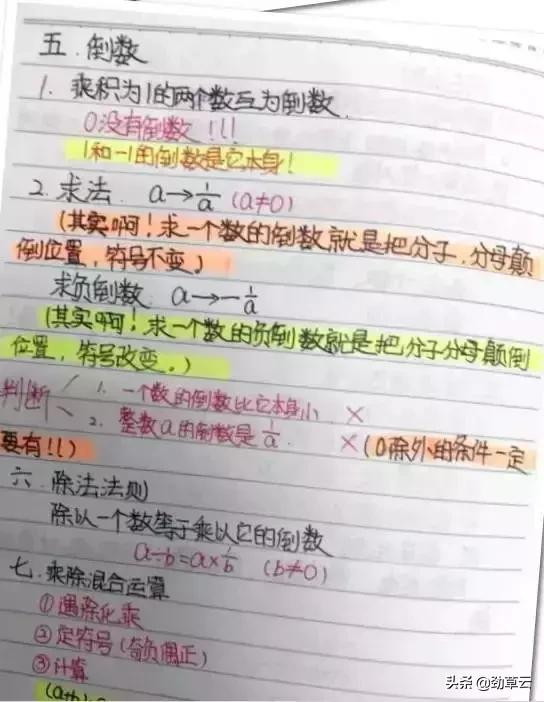 五.倒数
1. 乘积为1的两个数互为倒数.
0没有倒数!!!
1和-1的倒数是它本身!
2.求法. a→1/a (a≠0)
(其实啊!求一个数的倒数就是把分子,分母颠
倒位置,符号不变。)
求负倒数. a→-1/a
(其实啊!求一个数的负倒数就是把分子分母颠倒
位置,符号改变。)
判断 1. 一个数的倒数比它本身小 ×
2. 整数a的倒数是1/a. × (0除外的条件一定
要有!!)
六.除法法则
除以一个数等于乘以它的倒数
a÷b=a×1/b (b≠0)
七.乘除混合运算
①遇除化乘
②定符号(奇负偶正)
③计算
头条 @劲草云